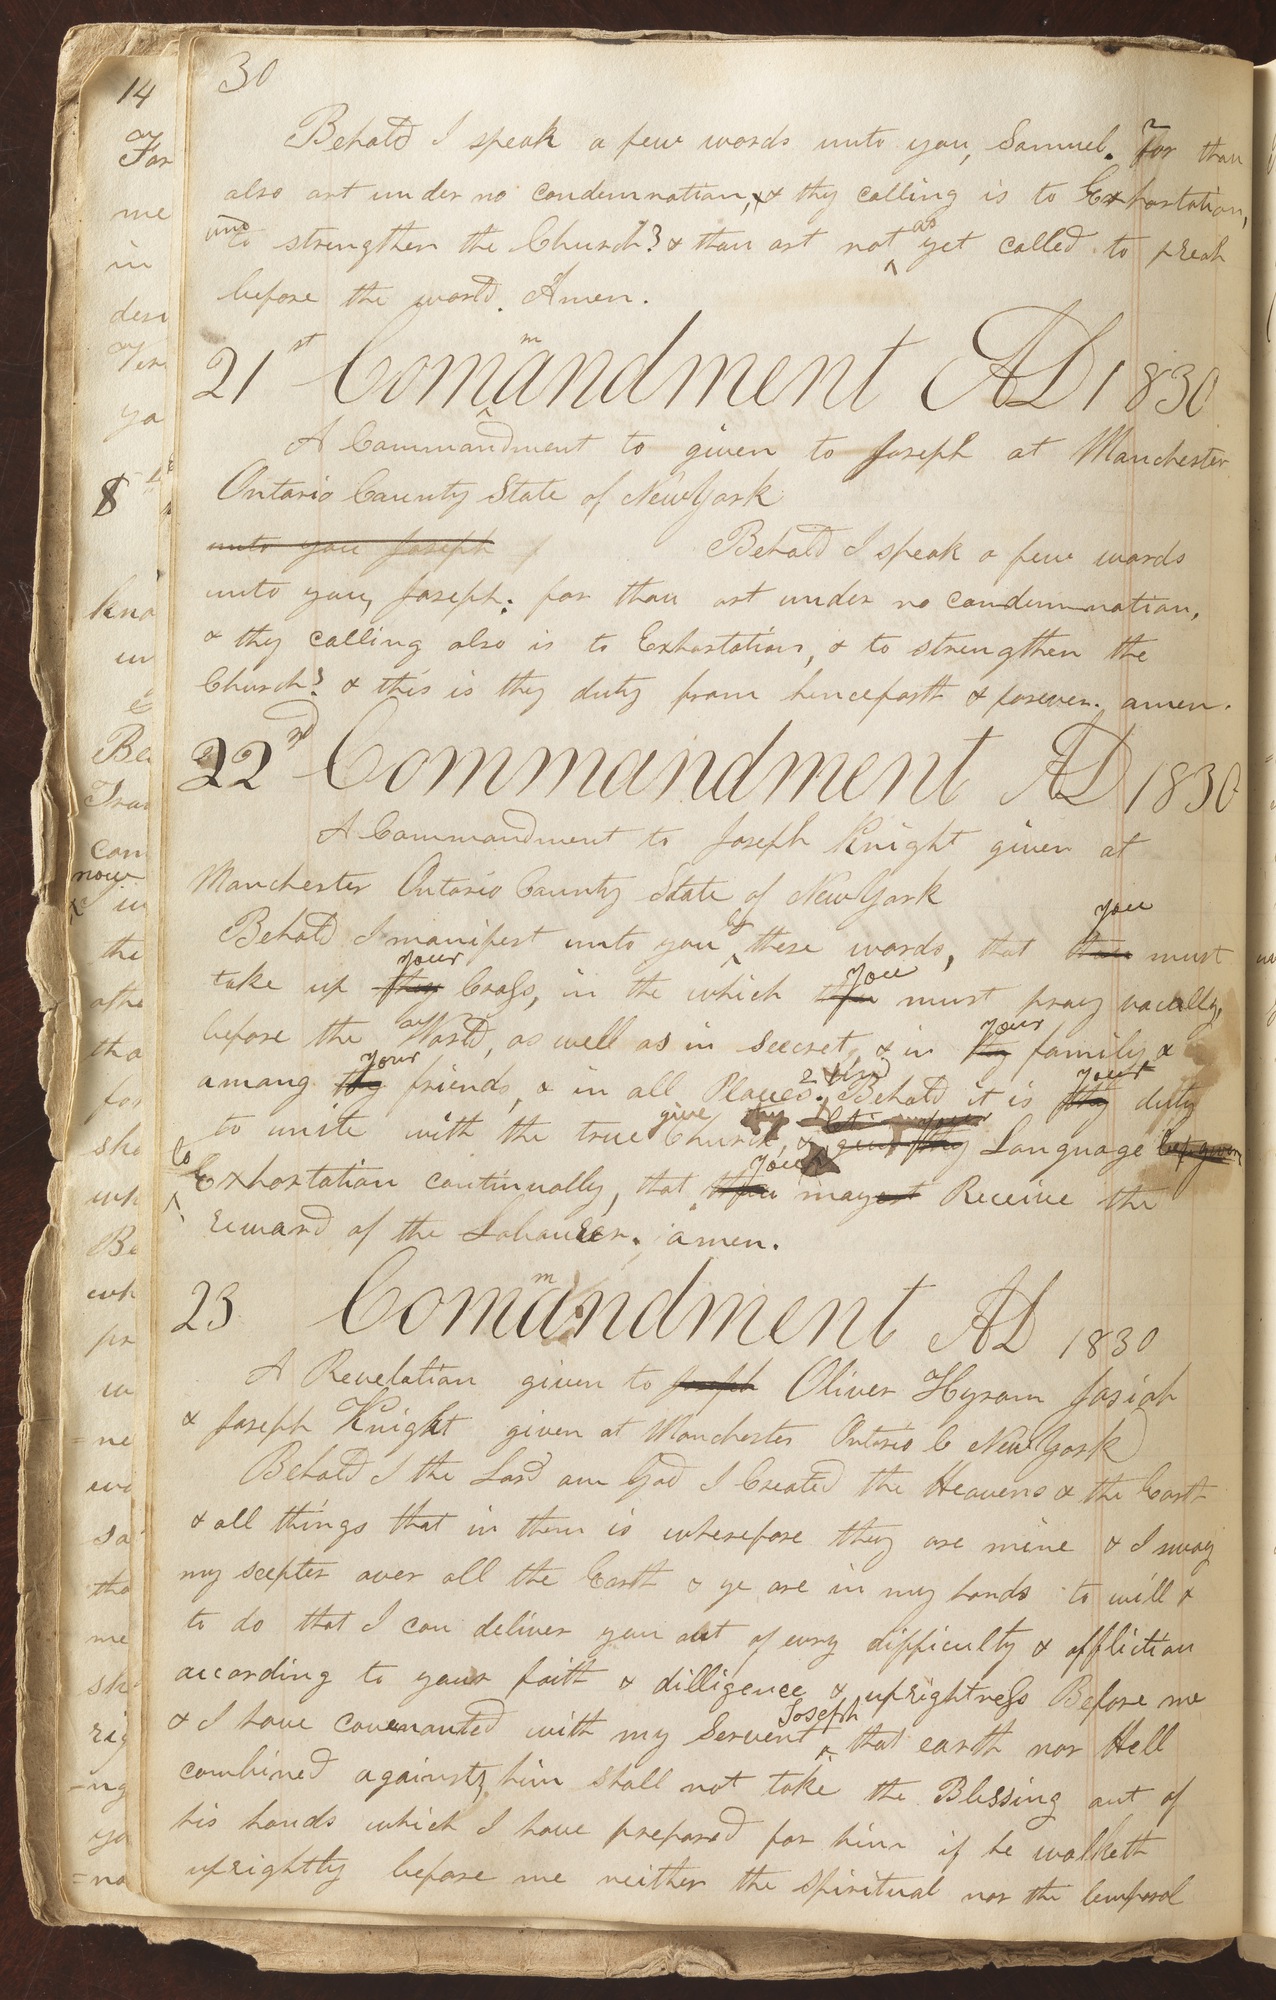 30
Behold I speak a few words unto you, Samuel. For thou
also art under no condemnation, & thy calling is to Exhortation,
and to strengthen the Church? & thou art not as yet called to preah
before the world. Amen.
21st Commandment AD 1830
A Commandment to given to Joseph at Manchester
Ontario County State of New York
unto you Joseph Behold I speak a few words
unto you, Joseph; for thou art under no condemnation,
& thy calling also is to Exhortation, & to strengthen the
Church? & this is thy duty from henceforth & forever. amen.
22nd Commandment AD 1830
A Commandment to Joseph Knight given at
Manchester Ontario County State of New York
Behold I manifest unto you by these words, that thou you must
take up thy your Cross, in the which thou you must pray vocally,
before the World, as well as in seecret, & in thy your family &
among thy your friends, & in all Places. 2 Behold it is thy your duty
to unite with the true Church, & give thy your Language
to Exhortation continually, that thou you mayest Receive the
reward of the Labourer. amen.
23 Commandment AD 1830
A Revelation given to Joseph Oliver Hyram Josiah
& Joseph Knight given at Manchester Ontario C New York
Behold I the Lord am God I Created the Heavens & the Earth
& all things that in them is wherefore they are mine & I sway
my scepter over all the Earth & ye are in my hands to will &
to do that I can deliver you out of evry difficulty & affliction
according to your faith & dilligence & uprightness Before me
& I have covenanted with my Servent Joseph that earth nor Hell
combined against him shall not take the Blessing out of
his hands which I have prepared for him if he walketh
uprightly before me neither the spiritual nor the temporal
14
For
me
in
ya
8
kno
un
Be
Tran
com
now
I in
the
othe
tho
for
sho
wh
Be
wh
pr
in
=ne
wo
sa
tho
me
sh
rig
-ng
yo
=no